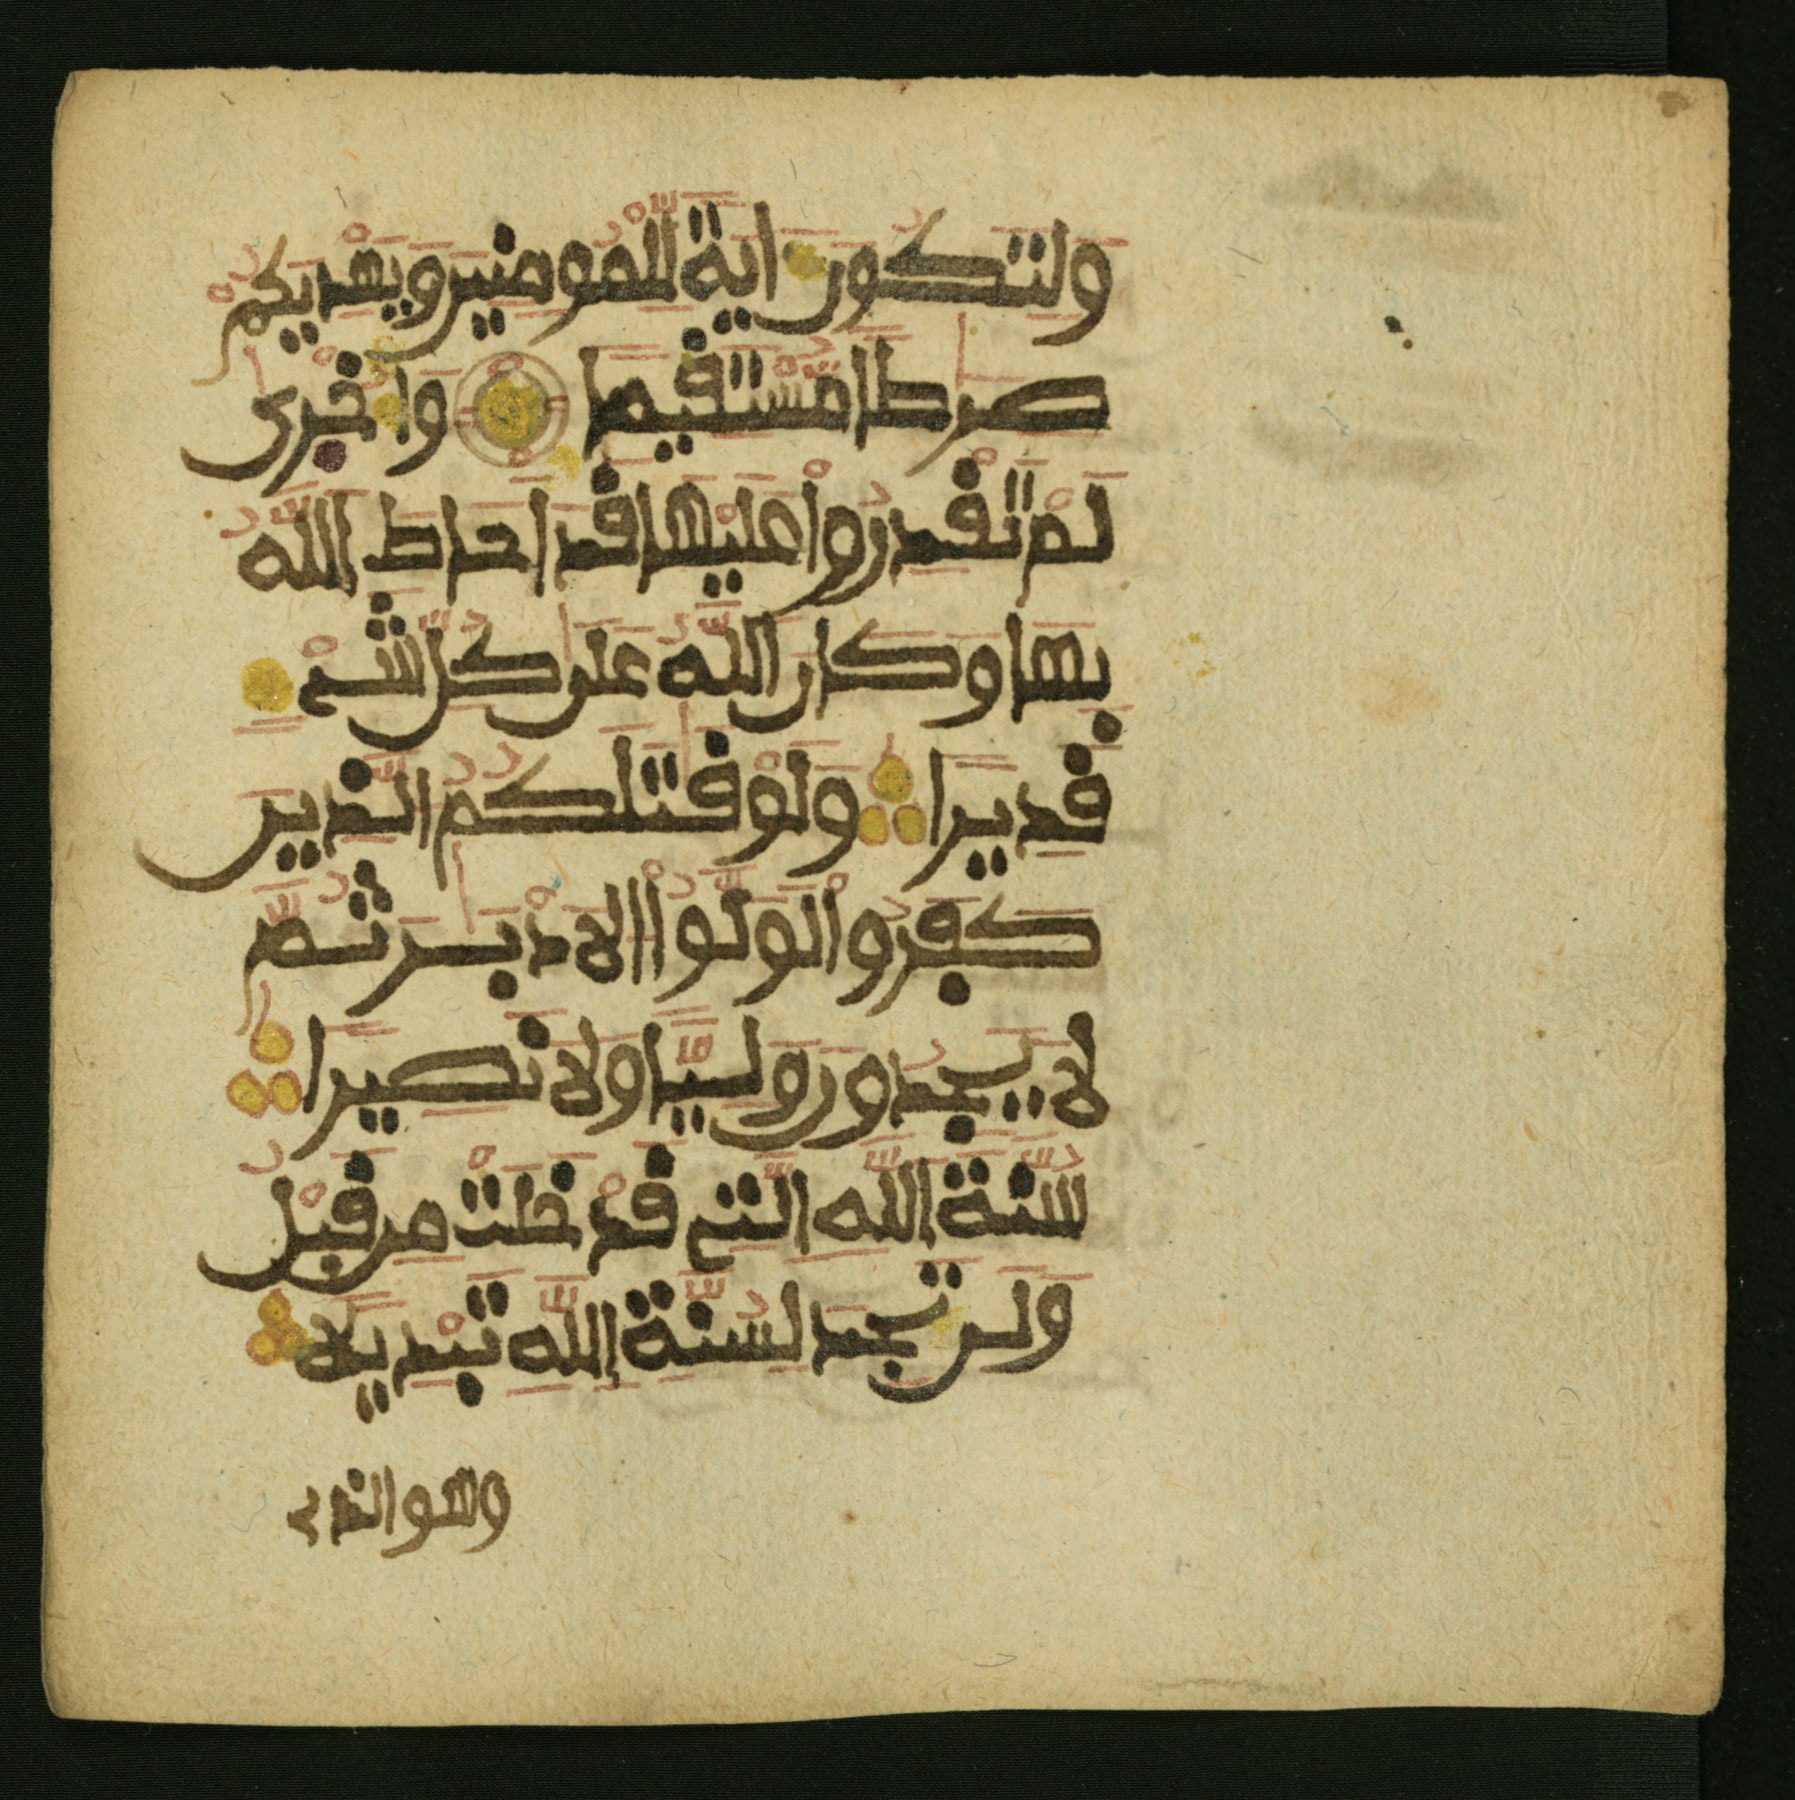 وَلِتَكُونَ ءَايَةً لِّلْمُومِنِينَ وَيَهْدِيَكُمْ
صِرَٰطًا مُّسْتَقِيمًا وَأُخْرَىٰ
لَمْ تَقْدِرُواْ عَلَيْهَا قَدَ اَحَاطَ اَللَّهُ
بِهَا وَكَانَ اَللَّهُ عَلَىٰ كُلِّ شَيْءٍ
قَدِيرًا وَلَوْ قَٰتَلَكُمُ اُلَّذِينَ
كَفَرُواْ لَوَلَّوُاْ اُلَادْبَٰرَ ثُمَّ
لَا يَجِدُونَ وَلِيًّا وَلَا نَصِيرًا
سُنَّةَ اَللَّهِ اِلَّتِي قَدْ خَلَتْ مِن قَبْلُ
وَلَن تَجِدَ لِسُنَّةِ اِللَّهِ تَبْدِيلًا
وهو الذي